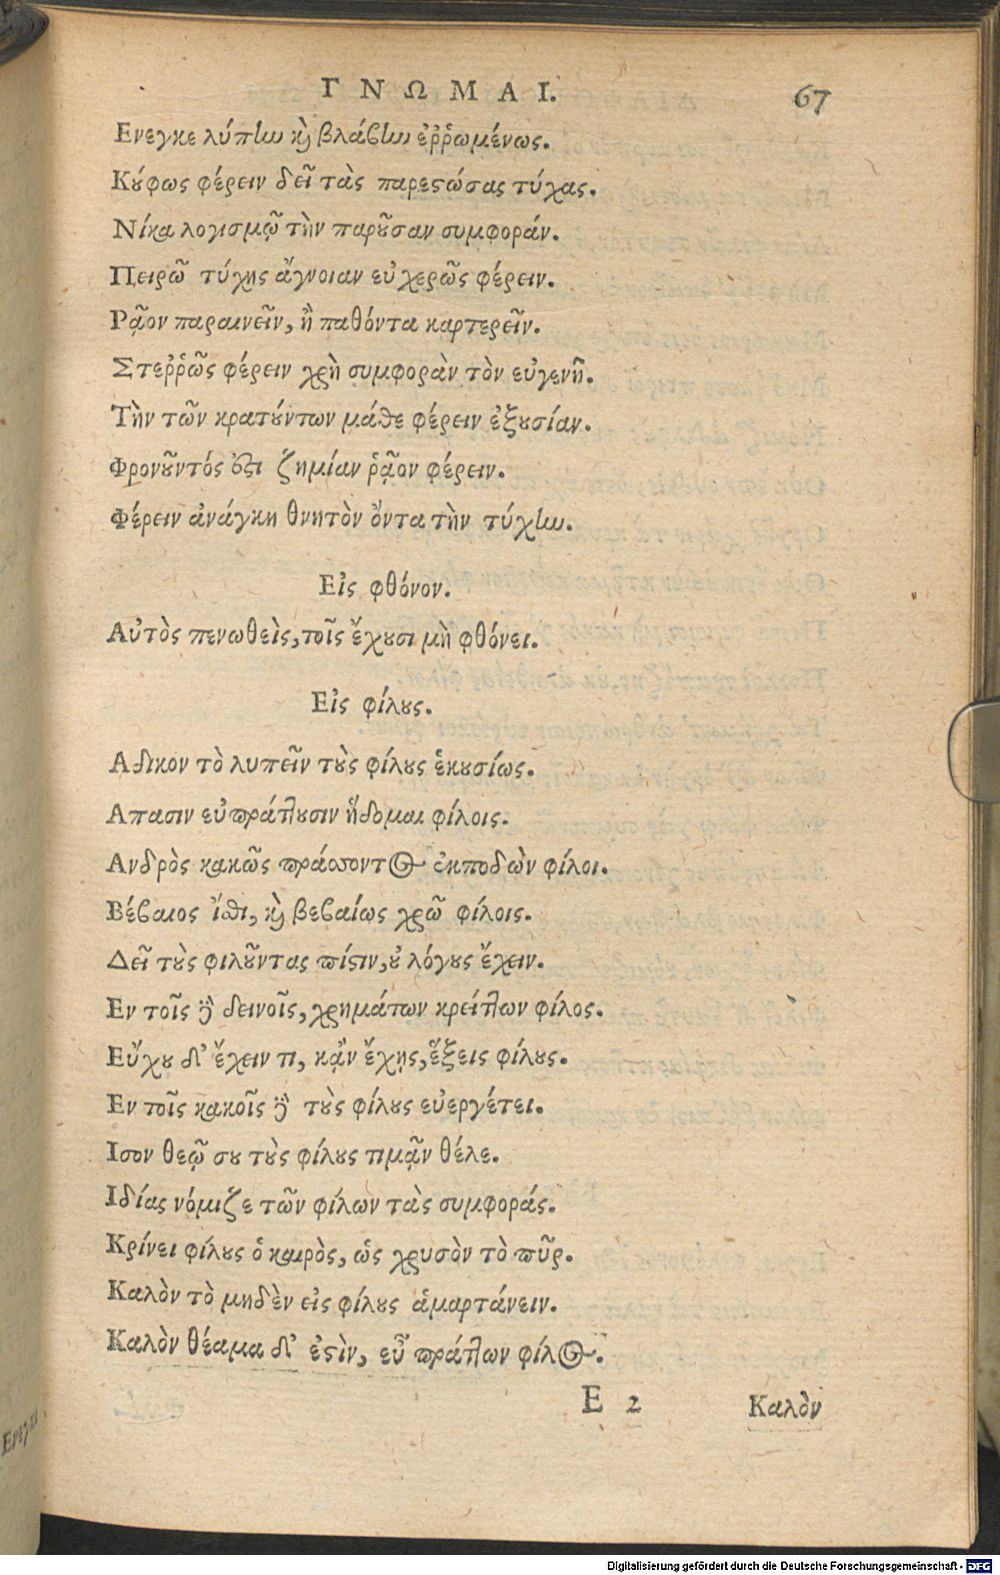 ΓΝΩΜΑΙ. 67
Ενεγκε λύπην καὶ βλάβην ἐῤῥωμένως.
Κούφως φέρειν δεῖ τὰς παρεστώσας τύχας.
Νίκα λογισμῷ τὴν παροῦσαν συμφοράν.
Πειρῶ τύχης ἄγνοιαν εὐχερῶς φέρειν.
Ρᾷον παραινεῖν, ἢ παθόντα καρτερεῖν.
Στεῤῥῶς φέρειν χρὴ συμφορὰν τὸν εὐγενῆ.
Τὴν τῶν κρατούντων μάθε φέρειν ἐξουσίαν.
Φρονοῦντός ἐστι ζημίαν ῥᾷον φέρειν.
Φέρειν ἀνάγκη θνητὸν ὄντα τὴν τύχην.
Εἰς φθόνον.
Αὐτὸς πενωθεὶς, τοῖς ἔχουσι μὴ φθόνει.
Εἰς φίλους.
Αδικον τὸ λυπεῖν τοὺς φίλους ἑκουσίως.
Απασιν εὐπράττουσιν ἥδομαι φίλοις.
Ανδρὸς κακῶς πράσσοντος ἐκποδὼν φίλοι.
Βέβαιος ἴσθι, καὶ βεβαίως χρῶ φίλοις.
Δεῖ τοὺς φιλοῦντας πίστιν, οὐ λόγους ἔχειν.
Εν τοῖς δὲ δεινοῖς, χρημάτων κρείττων φίλος.
Εὔχου δ' ἔχειν τι, κᾂν ἔχῃς, ἕξεις φίλους.
Εν τοῖς κακοῖς δὲ τοὺς φίλους εὐεργέτει.
Ισον θεῷ σου τοὺς φίλους τιμᾷν θέλε.
Ιδίας νόμιζε τῶν φίλων τὰς συμφοράς.
Κρίνει φίλους ὁ καιρὸς, ὡς χρυσὸν τὸ πῦρ.
Καλὸν τὸ μηδὲν εἰς φίλους ἁμαρτάνειν.
Καλὸν θέαμα δ' ἐστὶν, εὖ πράττων φίλος.
E 2 Καλὸν
Ενεγκε
Digitalisierung gefördert durch die Deutsche Forschungsgemeinschaft - DFG